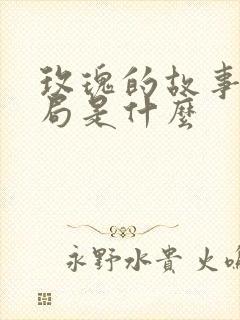 玫瑰的故事
局是什麼
永野水貴 火鳴